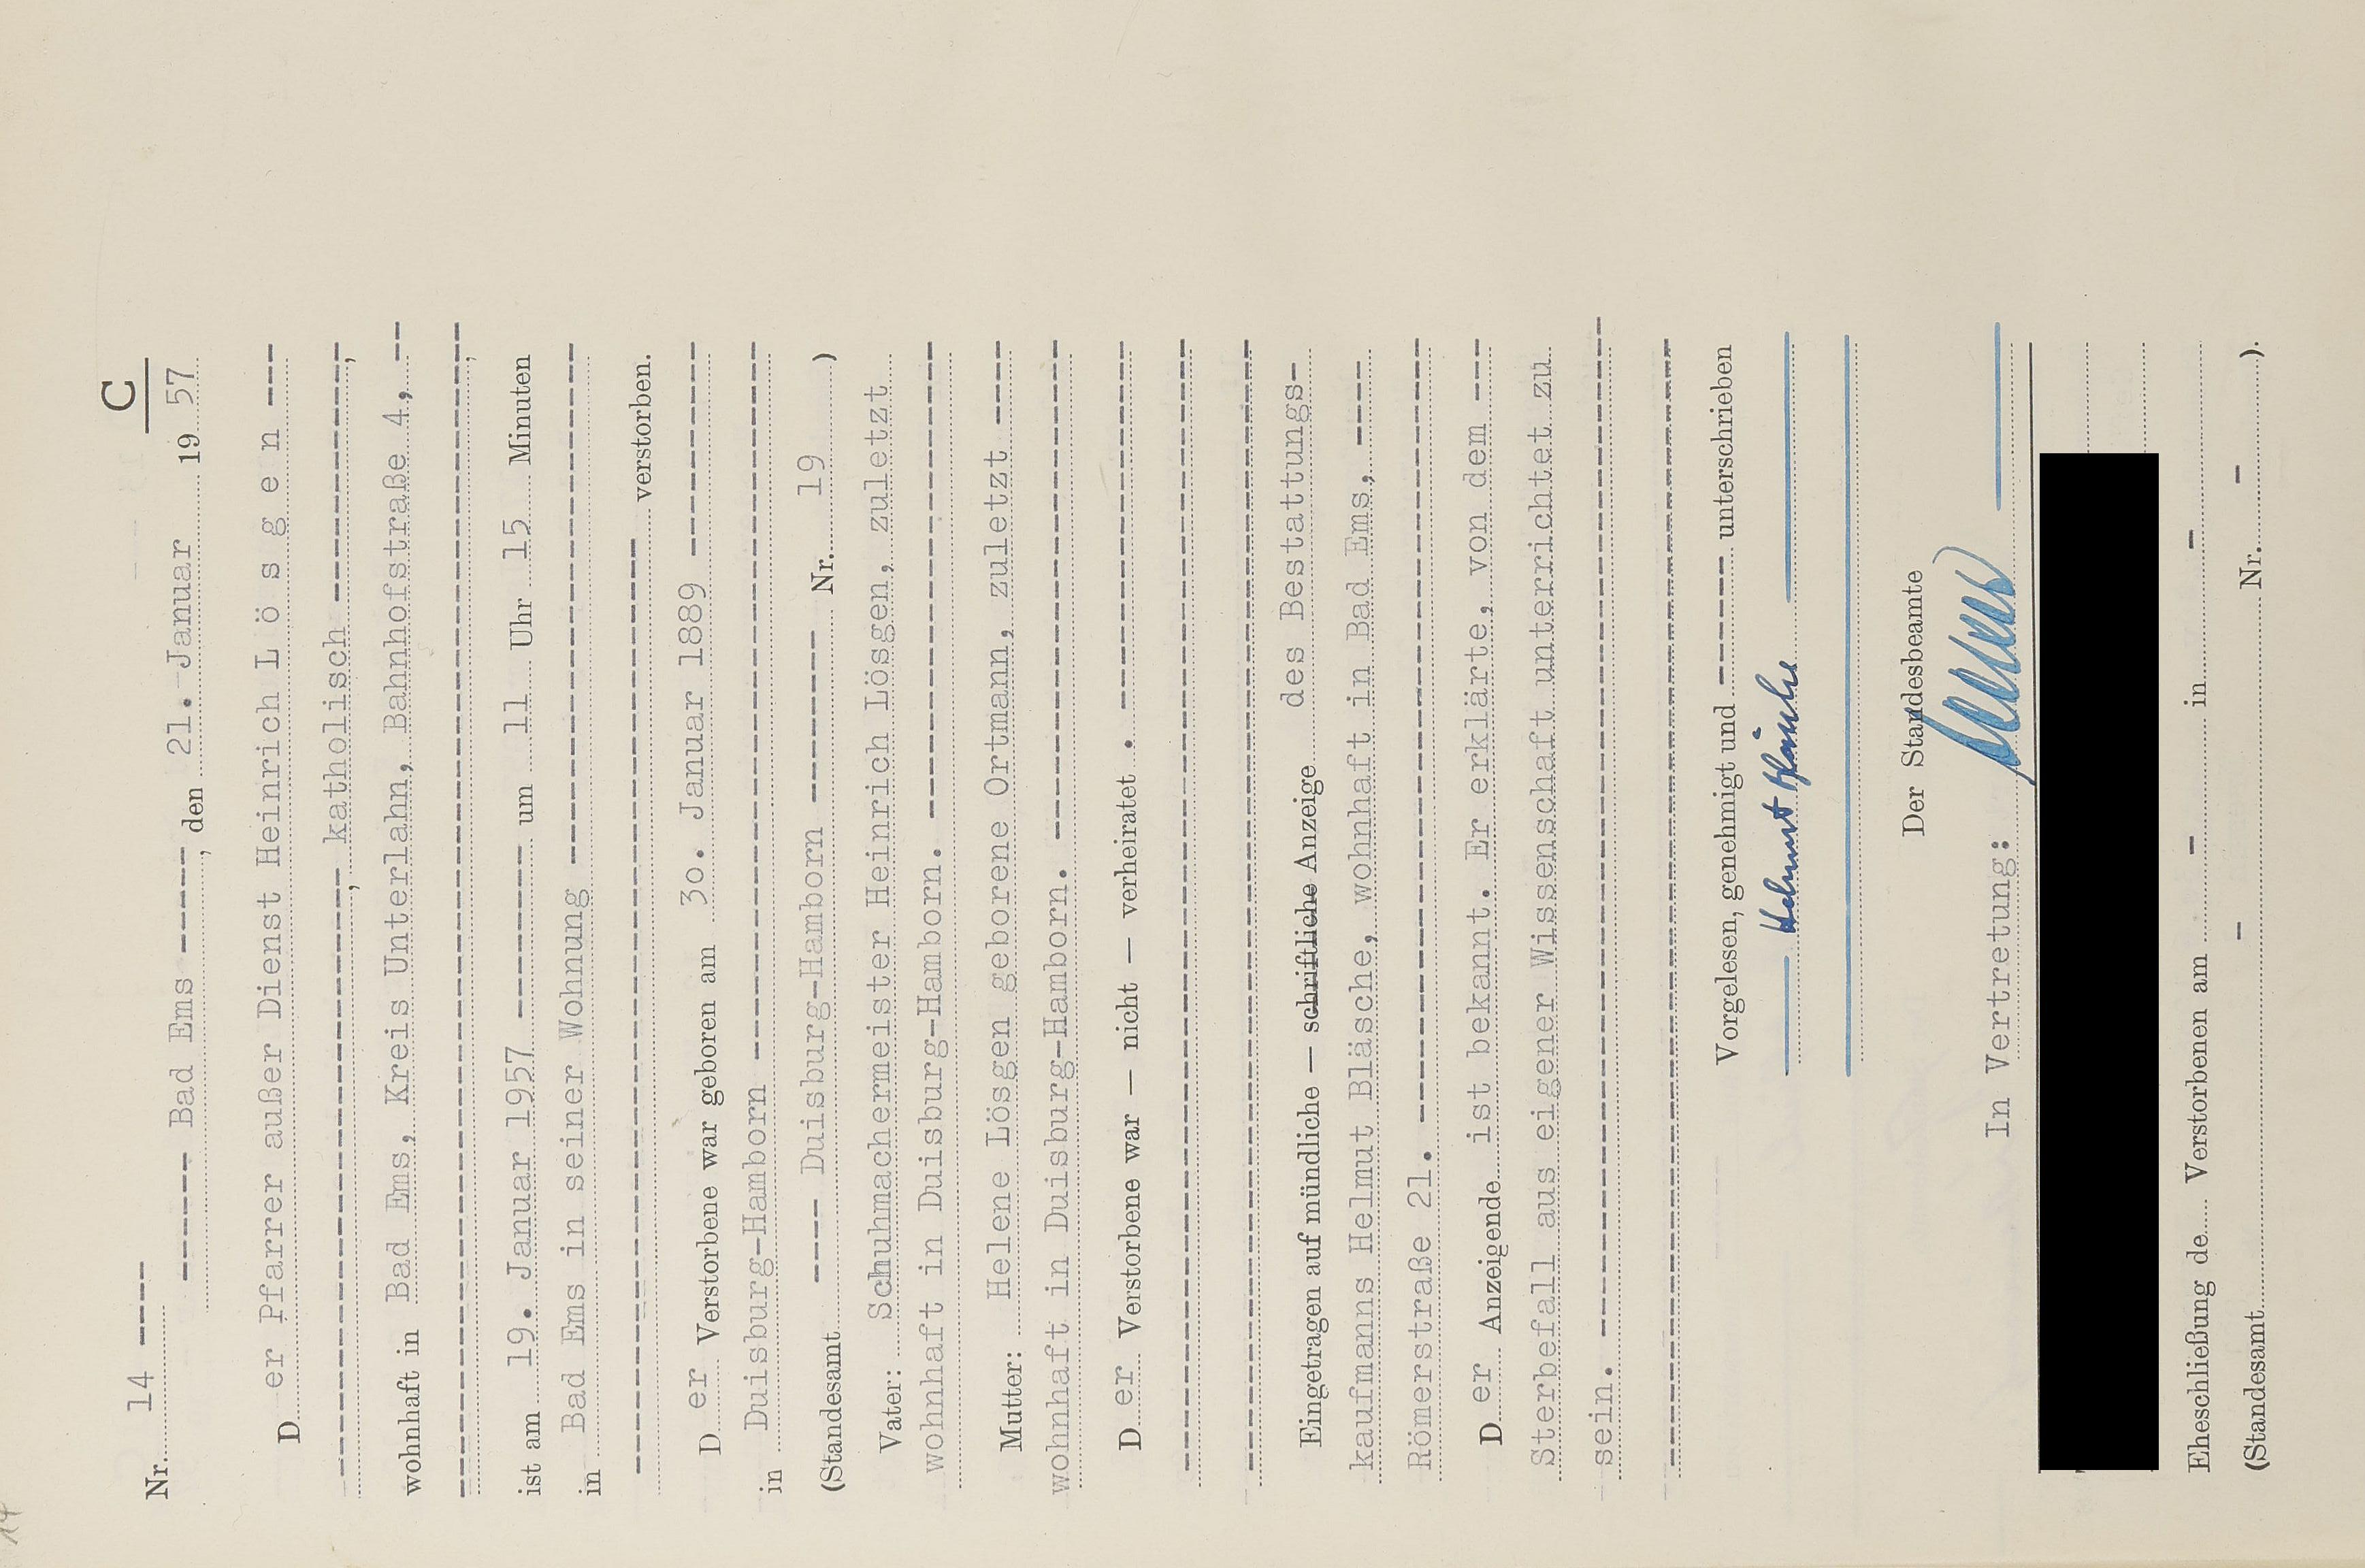 14
C
Nr. 14 ----
------ Bad Ems -----, den 21. Januar 19 57
D er Pfarrer außer Dienst Heinrich L ö s g e n ----
----------------------------, katholisch -------------,
wohnhaft in Bad Ems, Kreis Unterlahn, Bahnhofstraße 4, --
--------------------------------------------------------,
ist am 19. Januar 1957 --------- um 11 Uhr 15 Minuten
in Bad Ems in seiner Wohnung --------------------------
---------------------------------------------- verstorben.
D er Verstorbene war geboren am 30. Januar 1889 -----------
in Duisburg-Hamborn ------------------------------------
(Standesamt ---- Duisburg-Hamborn --------- Nr. 19 )
Vater: Schuhmachermeister Heinrich Lösgen, zuletzt
wohnhaft in Duisburg-Hamborn. ------------------------
Mutter: Helene Lösgen geborene Ortmann, zuletzt ----
wohnhaft in Duisburg-Hamborn. -------------------------
D er Verstorbene war — nicht — verheiratet . -------------------
--------------------------------------------------------
--------------------------------------------------------
Eingetragen auf mündliche — schriftliche Anzeige des Bestattungs-
kaufmanns Helmut Bläsche, wohnhaft in Bad Ems, ----
Römerstraße 21. ---------------------------------------
D er Anzeigende ist bekannt. Er erklärte, von dem ---
Sterbefall aus eigener Wissenschaft unterrichtet zu
sein. --------------------------------------------------
--------------------------------------------------------
Vorgelesen, genehmigt und ------- unterschrieben
Helmut Bläsche
Der Standesbeamte
In Vertretung:
Eheschließung de Verstorbenen am - in -
(Standesamt - Nr. - ).